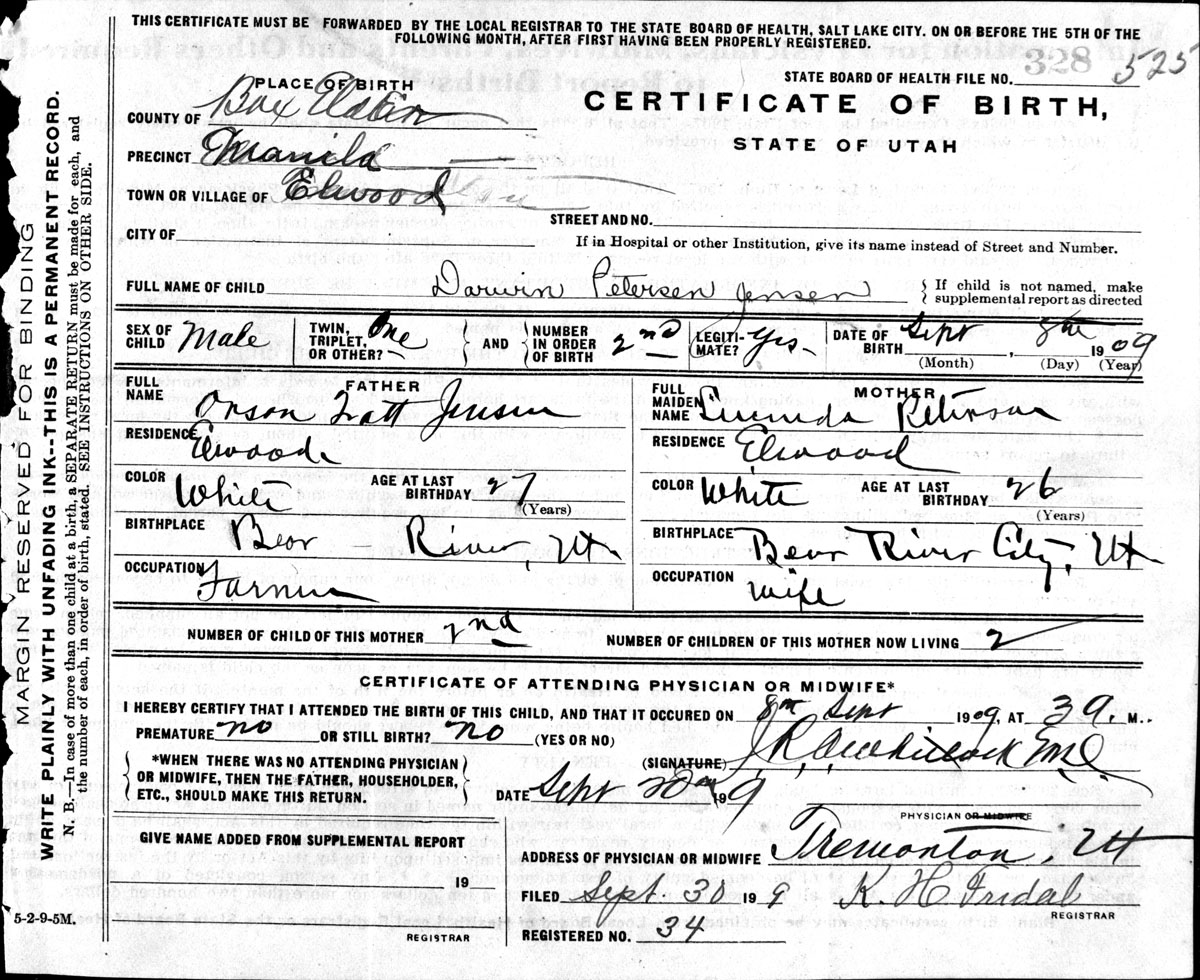 THIS CERTIFICATE MUST BE FORWARDED BY THE LOCAL REGISTRAR TO THE STATE BOARD OF HEALTH, SALT LAKE CITY, ON OR BEFORE THE 5TH OF THE
FOLLOWING MONTH, AFTER FIRST HAVING BEEN PROPERLY REGISTERED.
328 525
STATE BOARD OF HEALTH FILE NO.
PLACE OF BIRTH
CERTIFICATE OF BIRTH,
STATE OF UTAH
COUNTY OF Box Elder
PRECINCT Manila
TOWN OR VILLAGE OF Elwood
STREET AND NO.
CITY OF
If in Hospital or other Institution, give its name instead of Street and Number.
FULL NAME OF CHILD Darwin Petersen Jensen { If child is not named, make
supplemental report as directed
SEX OF CHILD Male TWIN, TRIPLET, OR OTHER? One } AND { NUMBER IN ORDER OF BIRTH 2nd LEGITIMATE? Yes DATE OF BIRTH Sept 8th 1909
(Month) (Day) (Year)
FATHER
FULL NAME Orson Pratt Jensen
RESIDENCE Elwood
COLOR White AGE AT LAST BIRTHDAY 27
(Years)
BIRTHPLACE Bear River, Ut
OCCUPATION Farmer
MOTHER
FULL MAIDEN NAME
RESIDENCE Elwood
COLOR White AGE AT LAST BIRTHDAY 26
(Years)
BIRTHPLACE Bear River City, Ut
OCCUPATION Wife
NUMBER OF CHILD OF THIS MOTHER 2nd NUMBER OF CHILDREN OF THIS MOTHER NOW LIVING 2
CERTIFICATE OF ATTENDING PHYSICIAN OR MIDWIFE*
I HEREBY CERTIFY THAT I ATTENDED THE BIRTH OF THIS CHILD, AND THAT IT OCCURED ON 8th Sept, 1909, AT 3 a. M..
PREMATURE no OR STILL BIRTH? no (YES OR NO)
*WHEN THERE WAS NO ATTENDING PHYSICIAN
OR MIDWIFE, THEN THE FATHER, HOUSEHOLDER,
ETC., SHOULD MAKE THIS RETURN.
(SIGNATURE)
DATE Sept 19 9
PHYSICIAN OR MIDWIFE
GIVE NAME ADDED FROM SUPPLEMENTAL REPORT
ADDRESS OF PHYSICIAN OR MIDWIFE Tremonton, Ut
19
REGISTRAR
FILED Sept. 30 19 9 K. H. Fridal
REGISTRAR
REGISTERED NO. 34
5-2-9-5M.
MARGIN RESERVED FOR BINDING
WRITE PLAINLY WITH UNFADING INK--THIS IS A PERMANENT RECORD.
N. B.—In case of more than one child at a birth, a SEPARATE RETURN must be made for each, and
the number of each, in order of birth, stated. SEE INSTRUCTIONS ON OTHER SIDE.